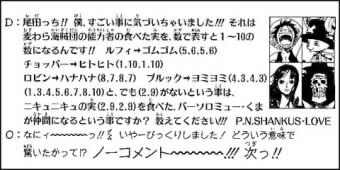 D：尾田っち!! 僕、すごい事に気づいちゃいました!!! それは
麦わら海賊団の能力者の食べた実を、数で表すと1～10の
数になるんです!! ルフィ→ゴムゴム(5.6.5.6)
チョッパー→ヒトヒト(1.10.1.10)
ロビン→ハナハナ(8.7.8.7) ブルック→ヨミヨミ(4.3.4.3)
(1.3.4.5.6.7.8.10)と、でも(2.9)がないという事は、
ニキュニキュの実(2.9.2.9)を食べた、バーソロミュー・くま
が仲間になるという事ですか? 教えてください!!! P.N.SHANKUS・LOVE
O：なにィ～～～～っ!! いやーびっくりしました! どういう意味で
驚いたかって!? ノーコメント～～～～～!!! 次っ!!